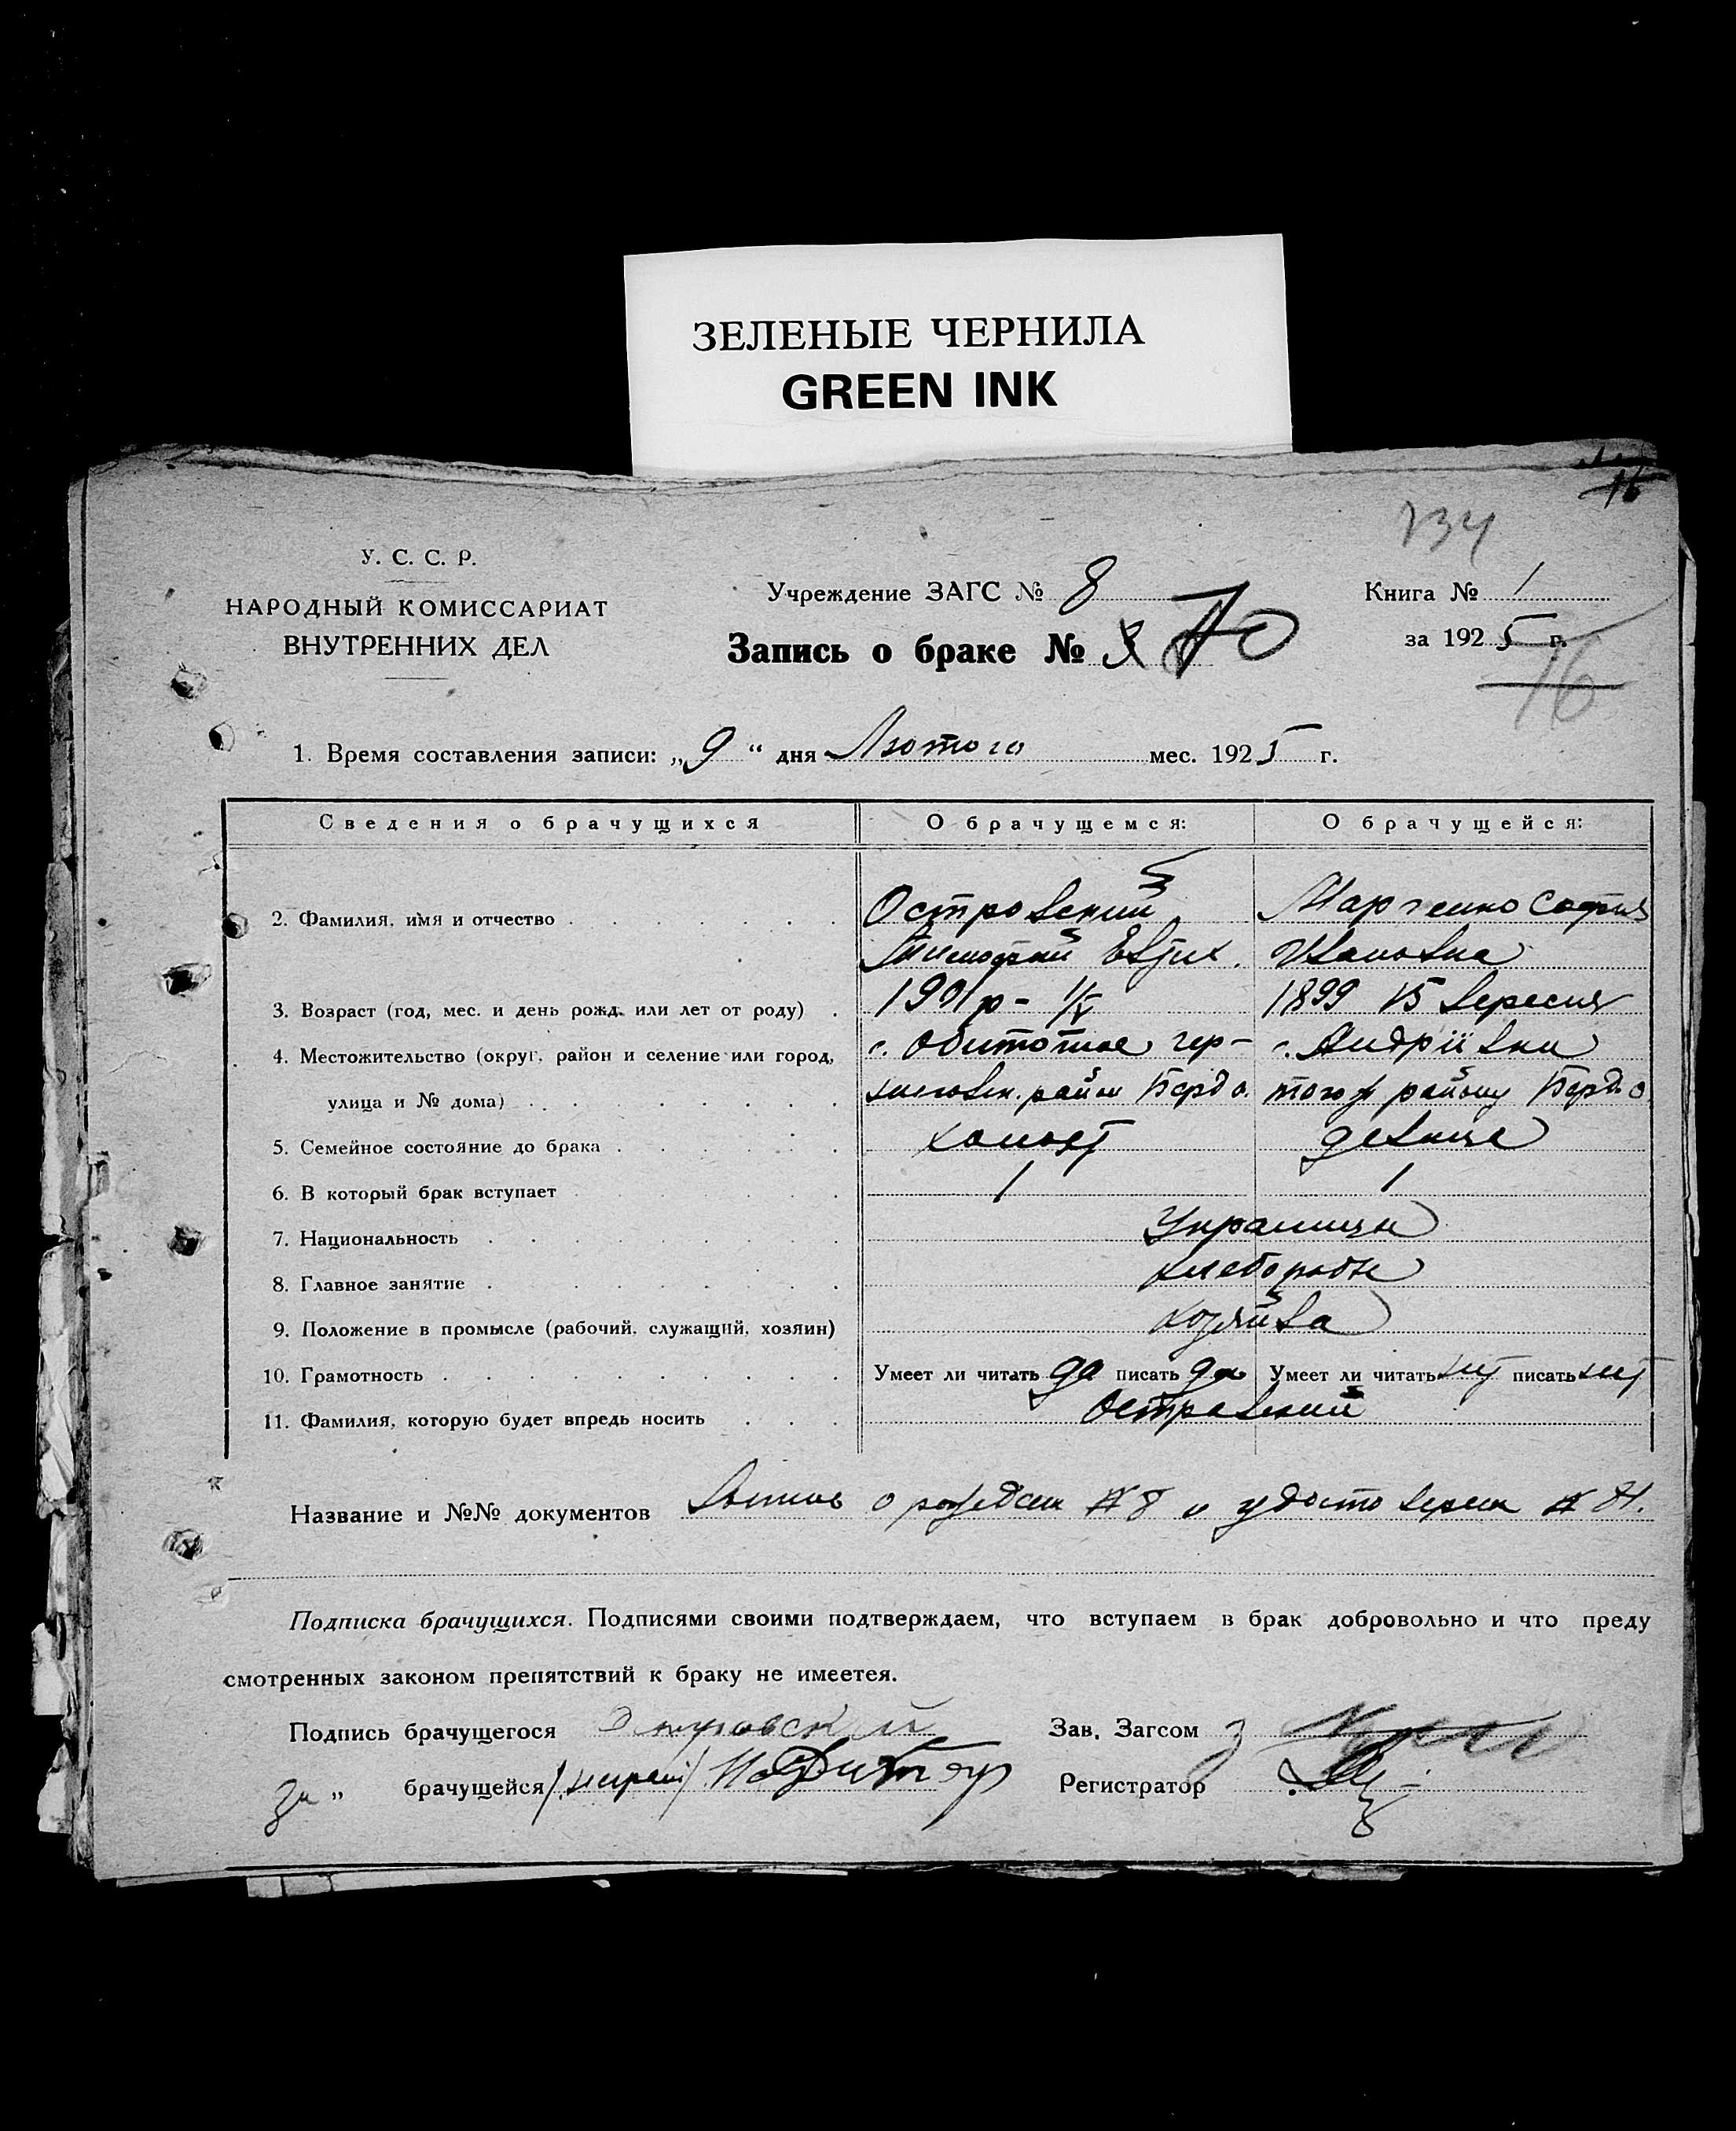 ЗЕЛЕНЫЕ ЧЕРНИЛА
GREEN INK
16
734
У. С. С. Р.
НАРОДНЫЙ КОМИССАРИАТ
ВНУТРЕННИХ ДЕЛ
Учреждение ЗАГС № 8
Запись о браке № 8 70
Книга № 1
за 1925 г.
16
1. Время составления записи: „9“ дня Лютого мес. 1925 г.
Сведения о брачущихся О брачущемся: О брачущейся:
2. Фамилия, имя и отчество Островский Марченко София
Тимофий Ивановна
3. Возраст (год, мес. и день рожд. или лет от роду) 1901 р - 1/V 1899 15 Вересня
4. Местожительство (округ, район и селение или город, с. Обиточне с. Андріївки
улица и № дома) район Бердо. того ж району Бердо
5. Семейное состояние до брака холост девица
6. В который брак вступает 1 1
7. Национальность Украинцы
8. Главное занятие хлеборобы
9. Положение в промысле (рабочий, служащий, хозяин) хозяйва
10. Грамотность Умеет ли читать да писать да Умеет ли читать нет писать нет
11. Фамилия, которую будет впредь носить Островский
Название и №№ документов о рожден № 8 и удостоверен №
Подписка брачущихся. Подписями своими подтверждаем, что вступаем в брак добровольно и что преду
смотренных законом препятствий к браку не имеетея.
Подпись брачущегося Островский Зав. Загсом
за „ брачущейся Регистратор